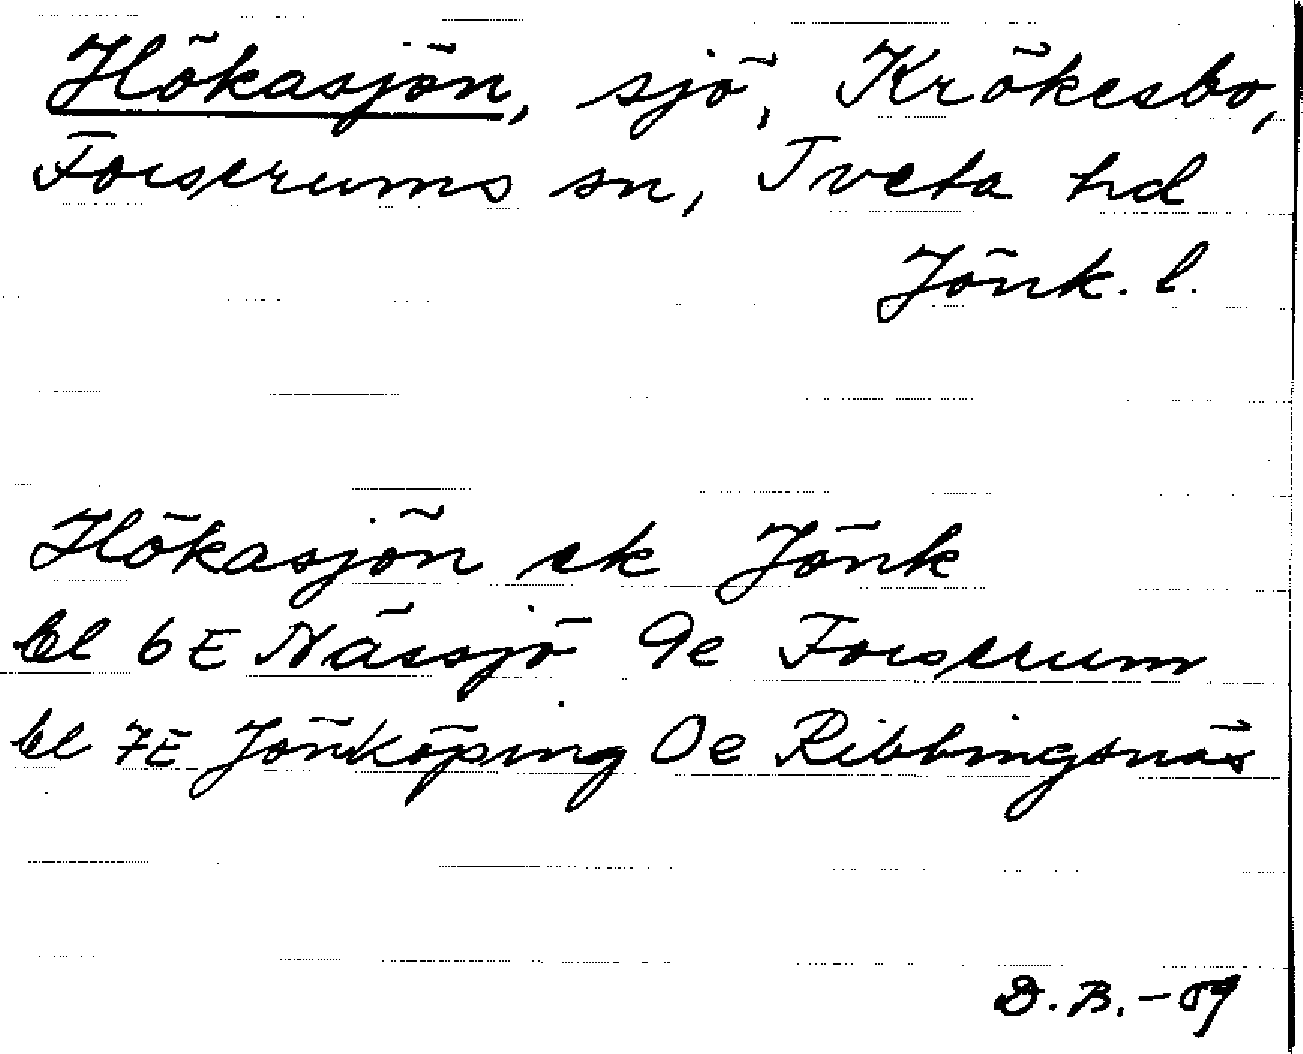 Hökasjön, sjö, Krökesbo,
Forserums sn, Tveta hd
Jönk. l.
Hökasjön ek Jönk
bl 6E Nässjö 9e Forserum
bl 7E Jönköping 0e Ribbingsnäs
D.B.-89